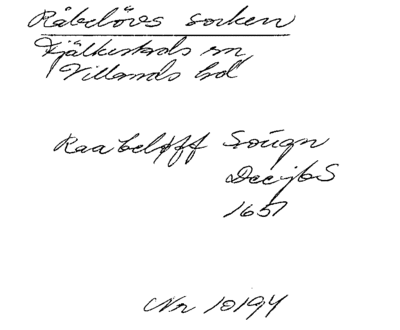 Råbelövs socken
Fjälkestads sn
Villands hd
Raabeløff Sougn
Decijbs
1651
Nr 10194